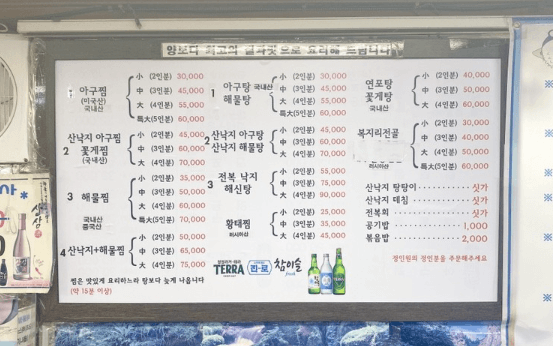 양보다 최고의
1 아구찜 (미국산) 국내산
小 (2인분) 30,000
中 (3인분) 45,000
大 (4인분) 55,000
특大(5인분) 60,000
2 산낙지 아구찜 꽃게찜 (국내산)
中 (2인분) 45,000
中 (3인분) 60,000
大 (4인분) 70,000
3 해물찜 국내산 중국산
小 (2인분) 35,000
中 (3인분) 50,000
大 (4인분) 60,000
특大(5인분) 70,000
4 산낙지+해물찜
小 (2인분) 50,000
中 (3인분) 65,000
大 (4인분) 75,000
찜은 맛있게 요리하느라 탕보다 늦게 나옵니다
(약 15분 이상)
1 아구탕 국내산 해물탕
小 (2인분) 30,000
中 (3인분) 45,000
大 (4인분) 55,000
특大(5인분) 60,000
2 산낙지 아구탕 산낙지 해물탕
小 (2인분) 45,000
中 (3인분) 60,000
大 (4인분) 70,000
3 전복 낙지 해신탕
小 (2인분) 55,000
中 (3인분) 75,000
大 (4인분) 90,000
황태찜 러시아산
小 (2인분) 25,000
中 (3인분) 35,000
大 (4인분) 45,000
TERRA
참이슬
fresh
연포탕 꽃게탕 국내산
小 (2인분) 40,000
中 (3인분) 50,000
大 (4인분) 60,000
복지리전골
小 (2인분) 30,000
中 (3인분) 40,000
大 (4인분) 50,000
특大(5인분) 60,000
러시아산
산낙지 탕탕이 싯가
산낙지 데침 싯가
전복회 싯가
공기밥 1,000
볶음밥 2,000
정인원의 정인분을 주문해주세요